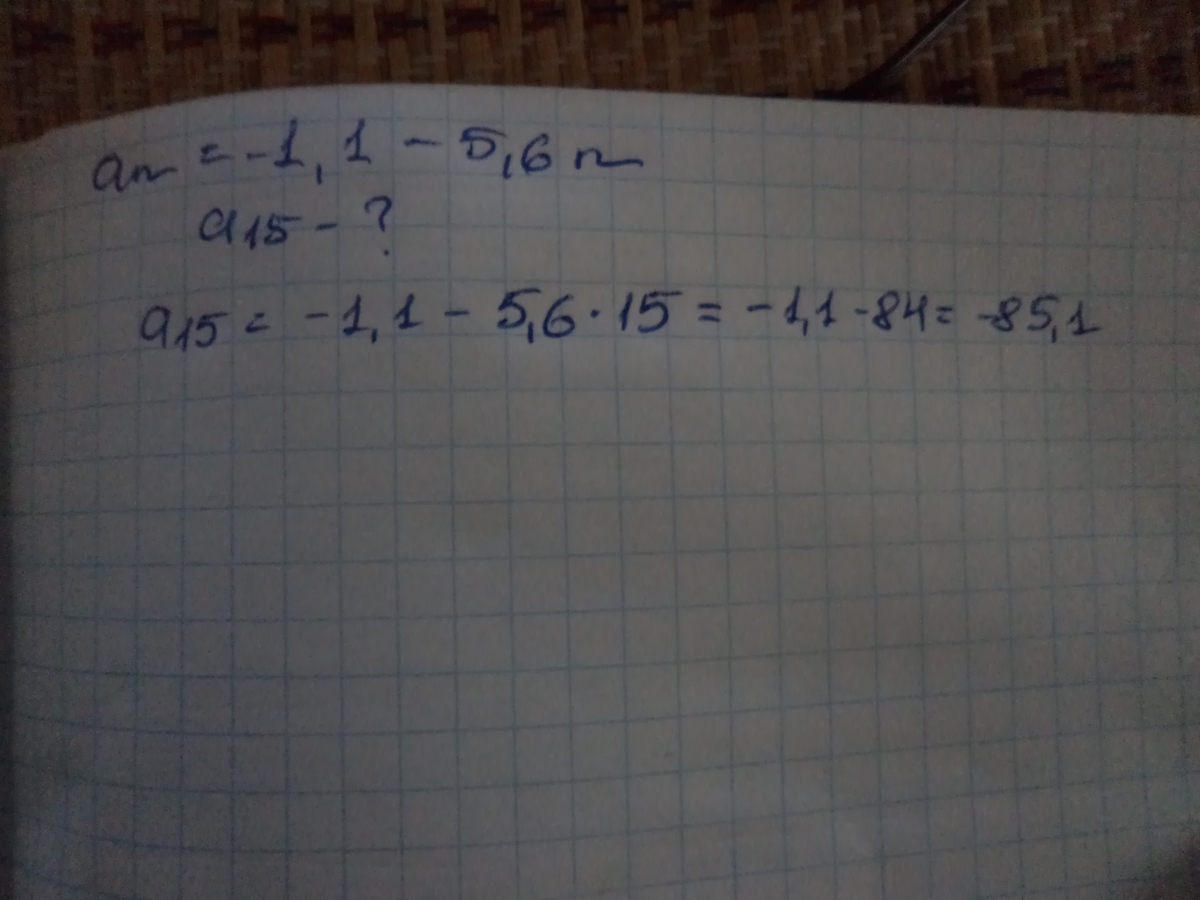 an = -1,1 - 5,6n
a15 - ?
a15 = -1,1 - 5,6·15 = -1,1-84= -85,1